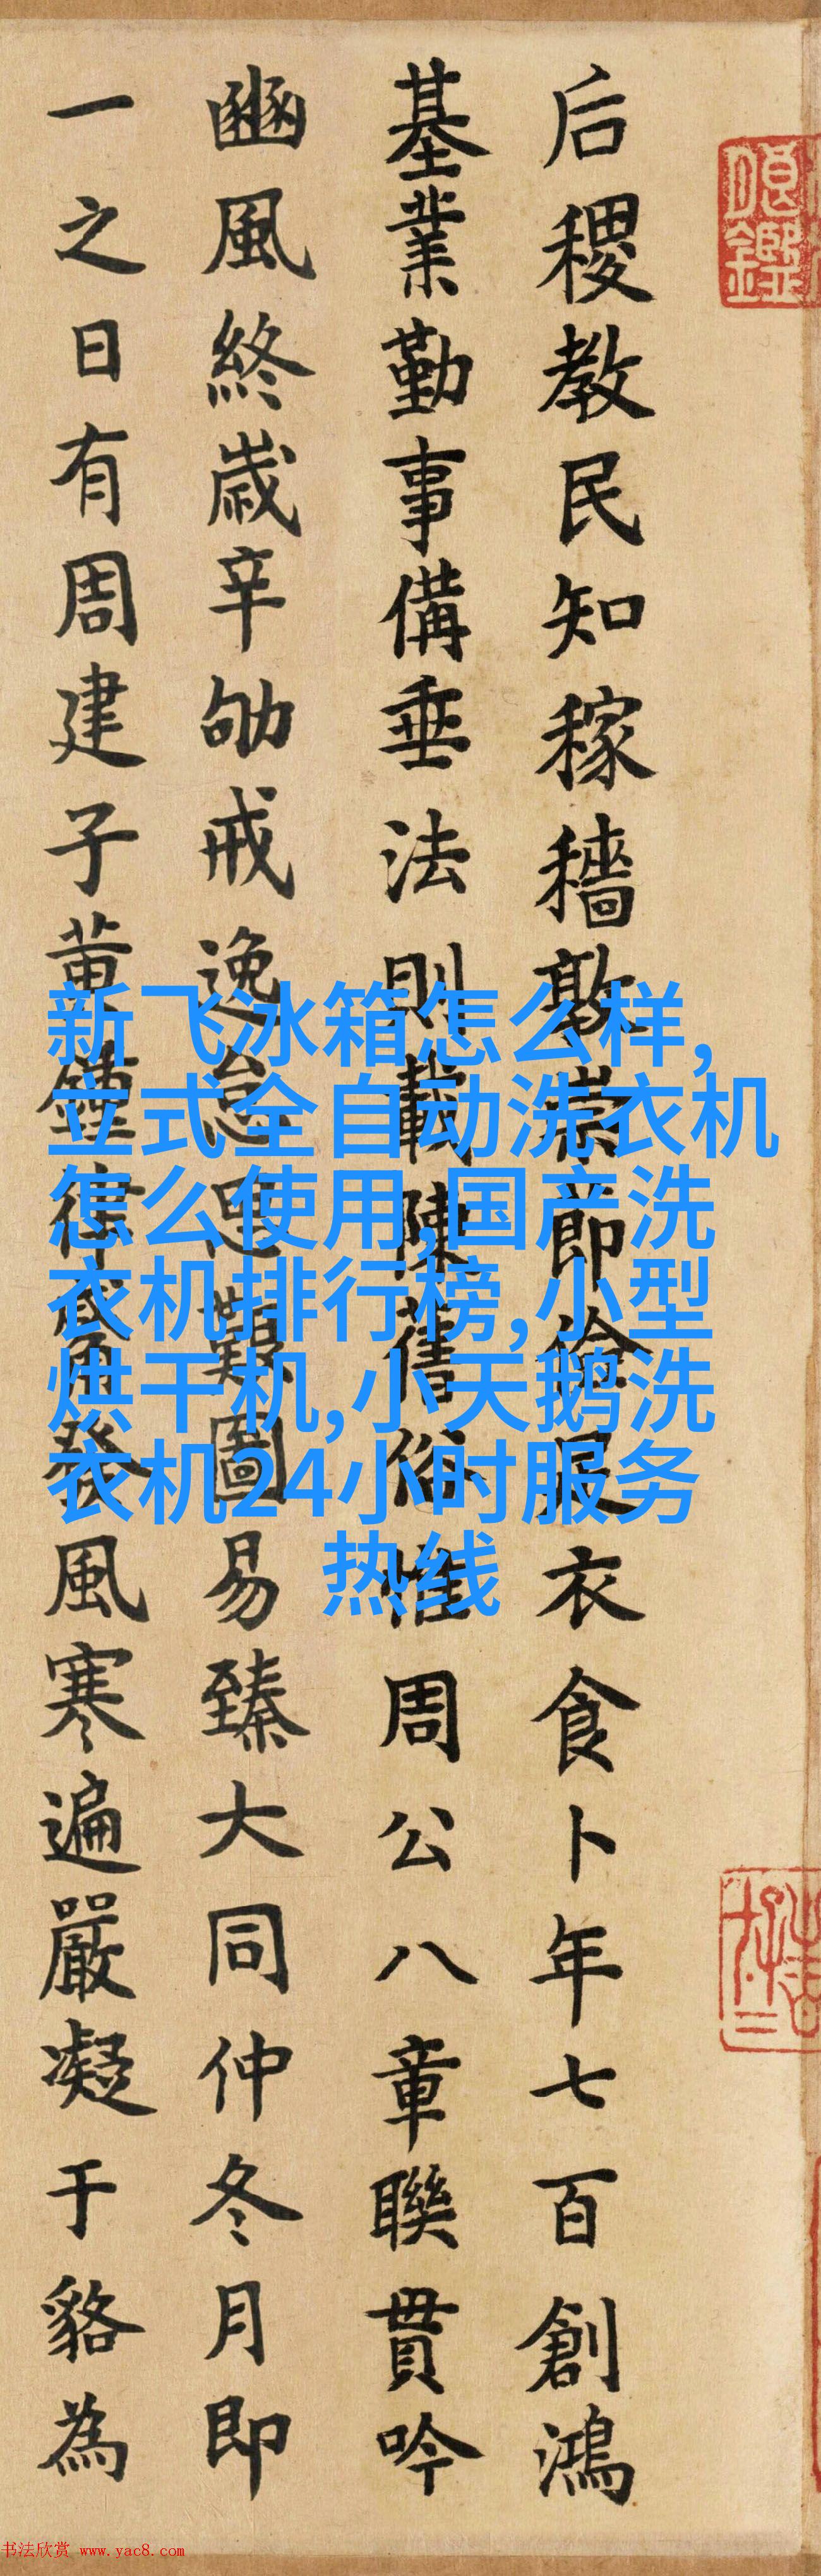 后稷教民知稼穡敦崇節儉足衣食卜年七百創鴻
基業勤事備垂法則載陳舊俗惟周公八章聯貫吟
豳風終歲辛劬戒逸怠艱圖易臻大同仲冬月即
一之日有周建子黃鐘律觱發風寒遍嚴凝于貉為
新飞冰箱怎么样,
立式全自动洗衣机
怎么使用,国产洗
衣机排行榜,小型
烘干机,小天鹅洗
衣机24小时服务
热线
书法欣赏 www.yac8.com